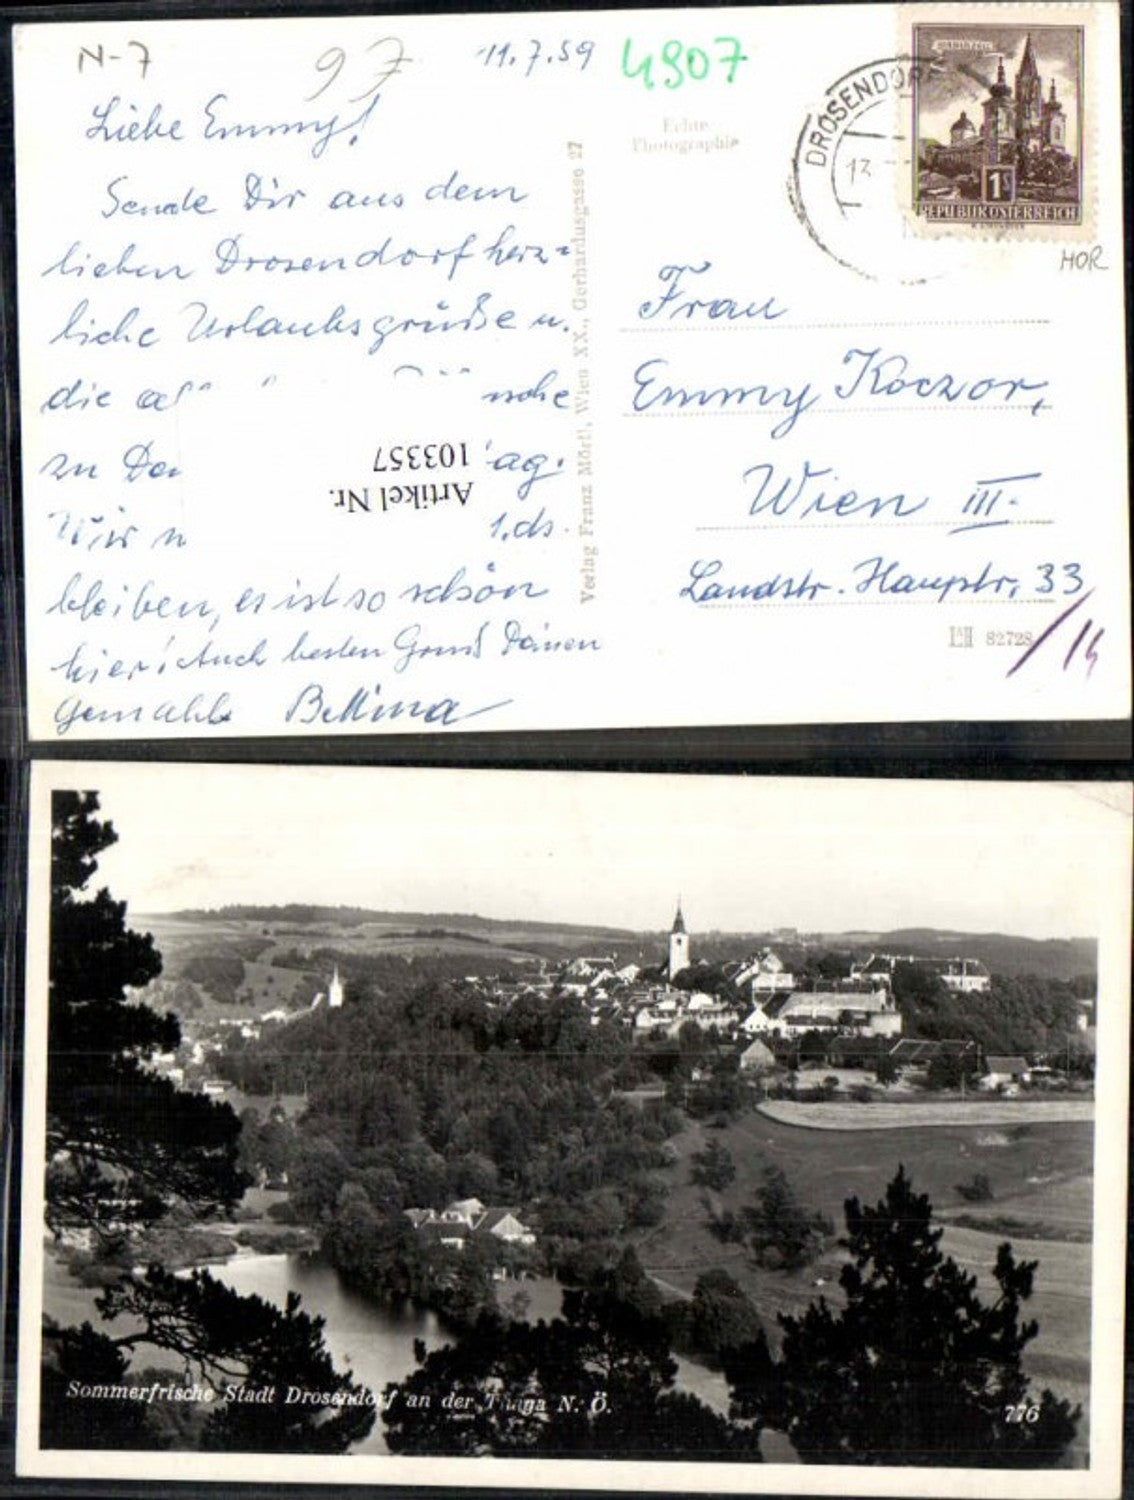 N-7
97
11.7.59
4907
Liebe Emmy!
Sende Dir aus dem
lieben Drosendorf herz=
liche Urlaubsgrüße u.
die
zu
Wir
bleiben, es ist so schön
hier! Auch besten Gruß Deinen
Gemahl Bettina
Artikel Nr.
103357
Verlag Franz Mörtl, Wien XX., Gerhardusgasse 27
Echte
Photographie
DROSENDORF
13
MARIAZELL
1S
REPUBLIK ÖSTERREICH
HOR
Frau
Emmy Koczor,
Wien III.
Landstr. Hauptstr. 33
/14
82728
Sommerfrische Stadt Drosendorf an der Thaya N. Ö.
776